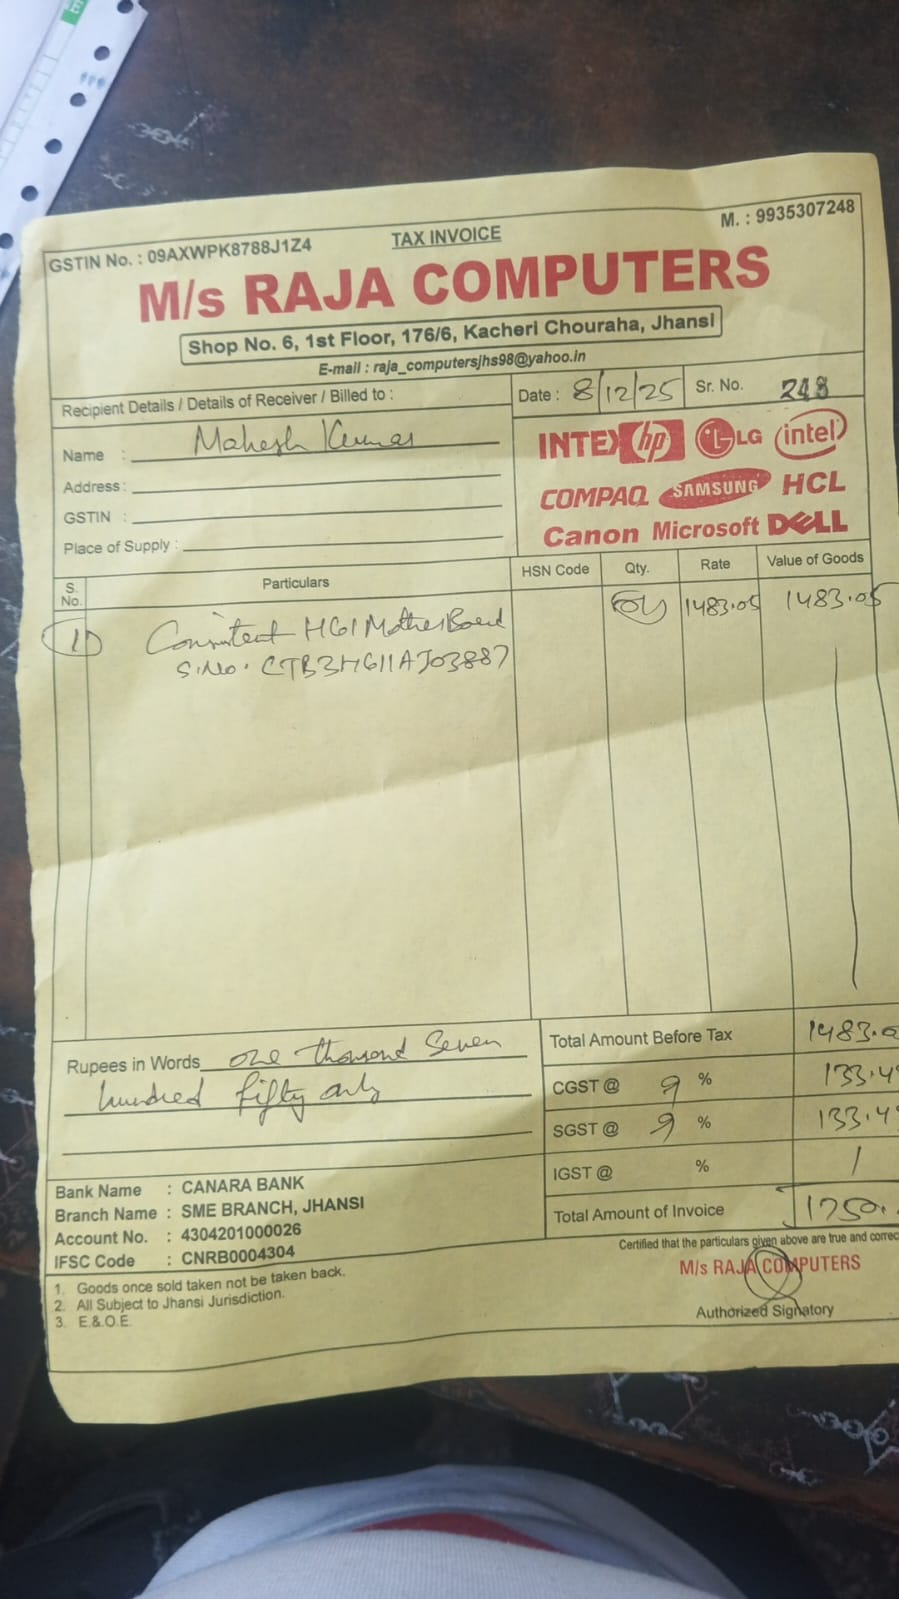 GSTIN No. : 09AXWPK8788J1Z4
TAX INVOICE
M. : 9935307248
M/s RAJA COMPUTERS
Shop No. 6, 1st Floor, 176/6, Kacheri Chouraha, Jhansi
E-mail : raja_computersjhs98@yahoo.in
Recipient Details / Details of Receiver / Billed to :
Date : 8/12/25
Sr. No. 248
Name : Mahesh Kumar
Address :
GSTIN :
Place of Supply :
INTEX hp LG intel
COMPAQ SAMSUNG HCL
Canon Microsoft DELL
S. No. Particulars HSN Code Qty. Rate Value of Goods
1 Consistent H61 MotherBoard 01 1483.05 1483.05
S.No. CTB3H611AJ03887
Rupees in Words one thousand Seven
hundred fifty only
Total Amount Before Tax 1483.0
CGST @ 9 % 133.4
SGST @ 9 % 133.4
IGST @ % /
Total Amount of Invoice 1750.
Bank Name : CANARA BANK
Branch Name : SME BRANCH, JHANSI
Account No. : 4304201000026
IFSC Code : CNRB0004304
Certified that the particulars given above are true and correc
M/s RAJA COMPUTERS
Authorized Signatory
1. Goods once sold taken not be taken back.
2. All Subject to Jhansi Jurisdiction.
3. E.&.O.E.